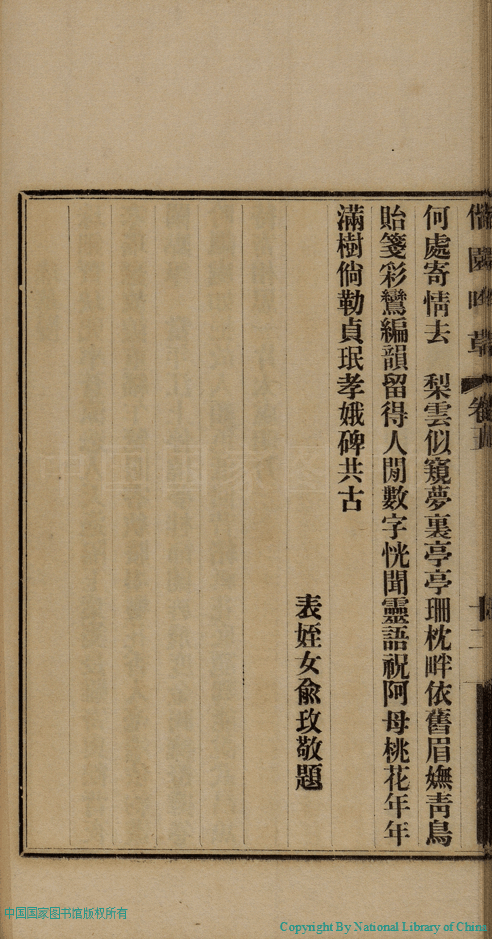 何處寄情去　梨雲似窺夢裏亭亭珊枕畔依舊眉嫵靑鳥
貽箋彩鸞編韻留得人閒數字恍聞靈語祝阿母桃花年年
滿樹倘勒貞珉孝娥碑共古
表姪女兪玫敬題
卷五
十二
中国国家图
中国国家图书馆版权所有
Copyright By National Library of China